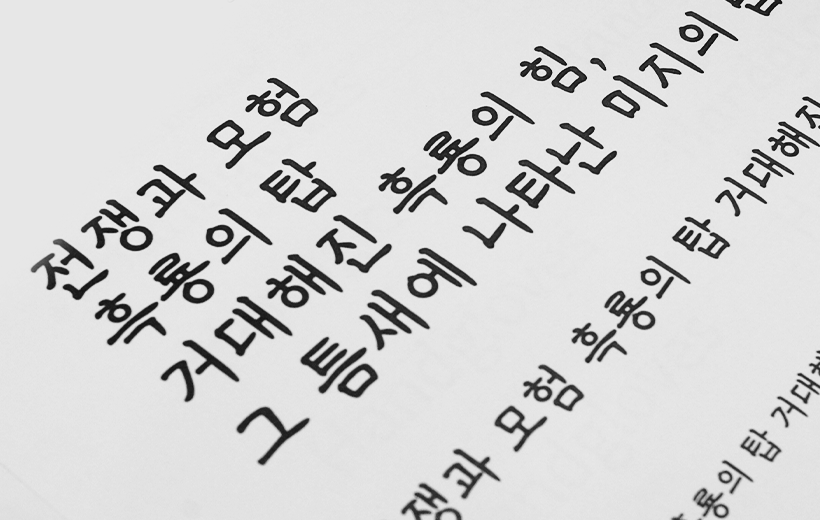 전쟁과 모험
흑룡의 탑
거대해진 흑룡의 힘,
그 틈새에 나타난 미지의 탑
쟁과 모험 흑룡의 탑 거대해진
흑룡의 탑 거대해